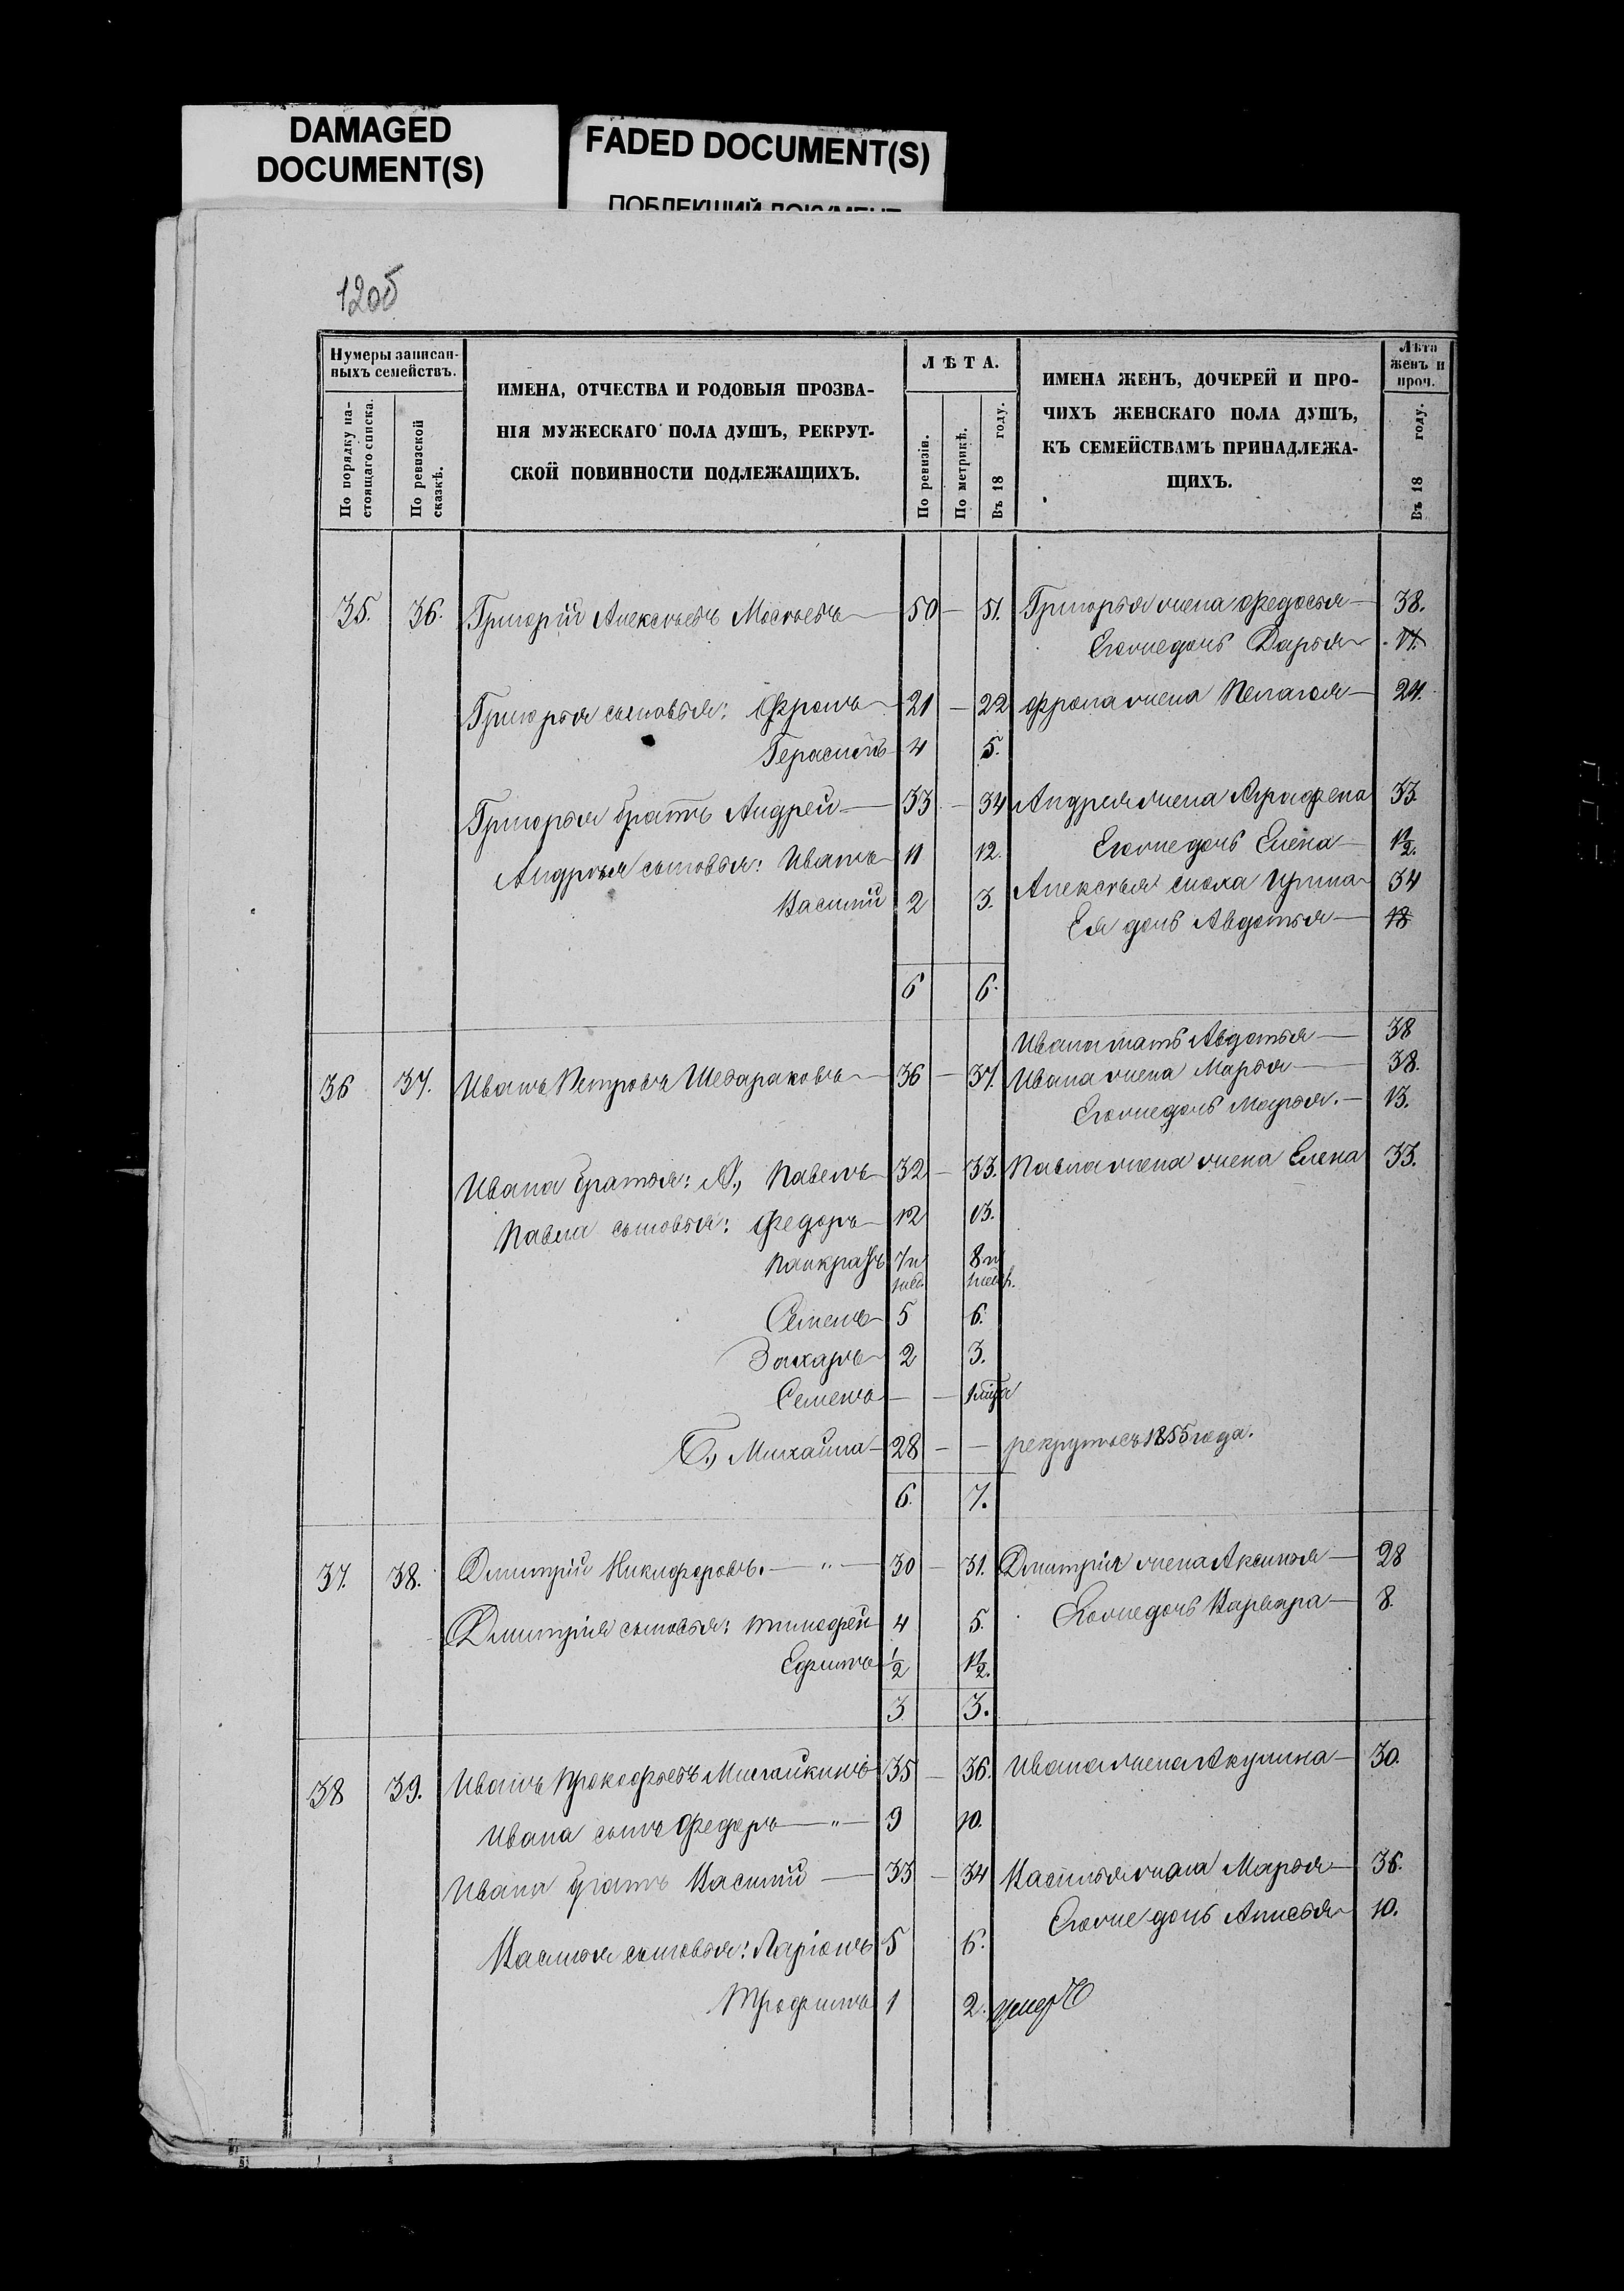 DAMAGED
DOCUMENT(S)
FADED DOCUMENT(S)
ПОБЛЕКШИЙ ДОКУМЕНТ
120об
Нумеры записан-
ныхъ семействъ.
По порядку на-
стоящаго списка.
По ревизской
сказкѣ.
ИМЕНА, ОТЧЕСТВА И РОДОВЫЯ ПРОЗВА-
НІЯ МУЖЕСКАГО ПОЛА ДУШЪ, РЕКРУТ-
СКОЙ ПОВИННОСТИ ПОДЛЕЖАЩИХЪ.
ЛѢТА.
По ревизіи.
По метрикѣ.
Въ 18 году.
ИМЕНА ЖЕНЪ, ДОЧЕРЕЙ И ПРО-
ЧИХЪ ЖЕНСКАГО ПОЛА ДУШЪ,
КЪ СЕМЕЙСТВАМЪ ПРИНАДЛЕЖА-
ЩИХЪ.
Лѣта
женъ и
проч.
Въ 18 году.
35. 36. Григорій Алексѣевъ Мосѣевъ — 50 — 51. Григорья жена Федосья — 38.
Егоже дочь Дарья 17.
Григорья сыновья: Фролъ 21 — 22 Фрола жена Пелагея — 24.
Герасимъ 4 5.
Григорья братъ Андрей — 33 — 34 Андрея жена Аграфена 33.
Андрѣя сыновья: Иванъ 11 12. Егоже дочь Елена — 1½.
Василій 2 3. Алексѣя сноха Ирина 34
Ея дочь Авдотья — 18
6 6.
Ивана мать Авдотья — 38
36 37. Иванъ Петровъ 36 — 37. Ивана жена Марья — 38.
Егоже дочь Марья. — 13.
Ивана братья: А., Павелъ 32 — 33. Павла жена жена Елена 33.
Павла сыновья: Федоръ 12 13.
Панкратъ 7 и 8 и
Семенъ 5 6.
Захаръ 2 3.
Семенъ — —
Б., Михайла — 28 — — рекрутъ съ 1855 года.
6. 7.
37. 38. Дмитрій Никифоровъ. — „ — 30 — 31. Дмитрія жена Аксинья — 28
Дмитрія сыновья: Тимофей 4 5. Егоже дочь Варвара — 8.
Ефимъ ½ 1½.
3 3.
38 39. Иванъ Прокофьевъ 35 — 36. Ивана жена Акулина — 30.
Ивана сынъ Федоръ — „ — 9 10.
Ивана братъ Василій — 33 — 34 Василья жена Марья — 36.
Егоже дочь Анисья 10.
Василья сыновья: Ларіонъ 5 6.
Трофимъ 1 2. умеръ